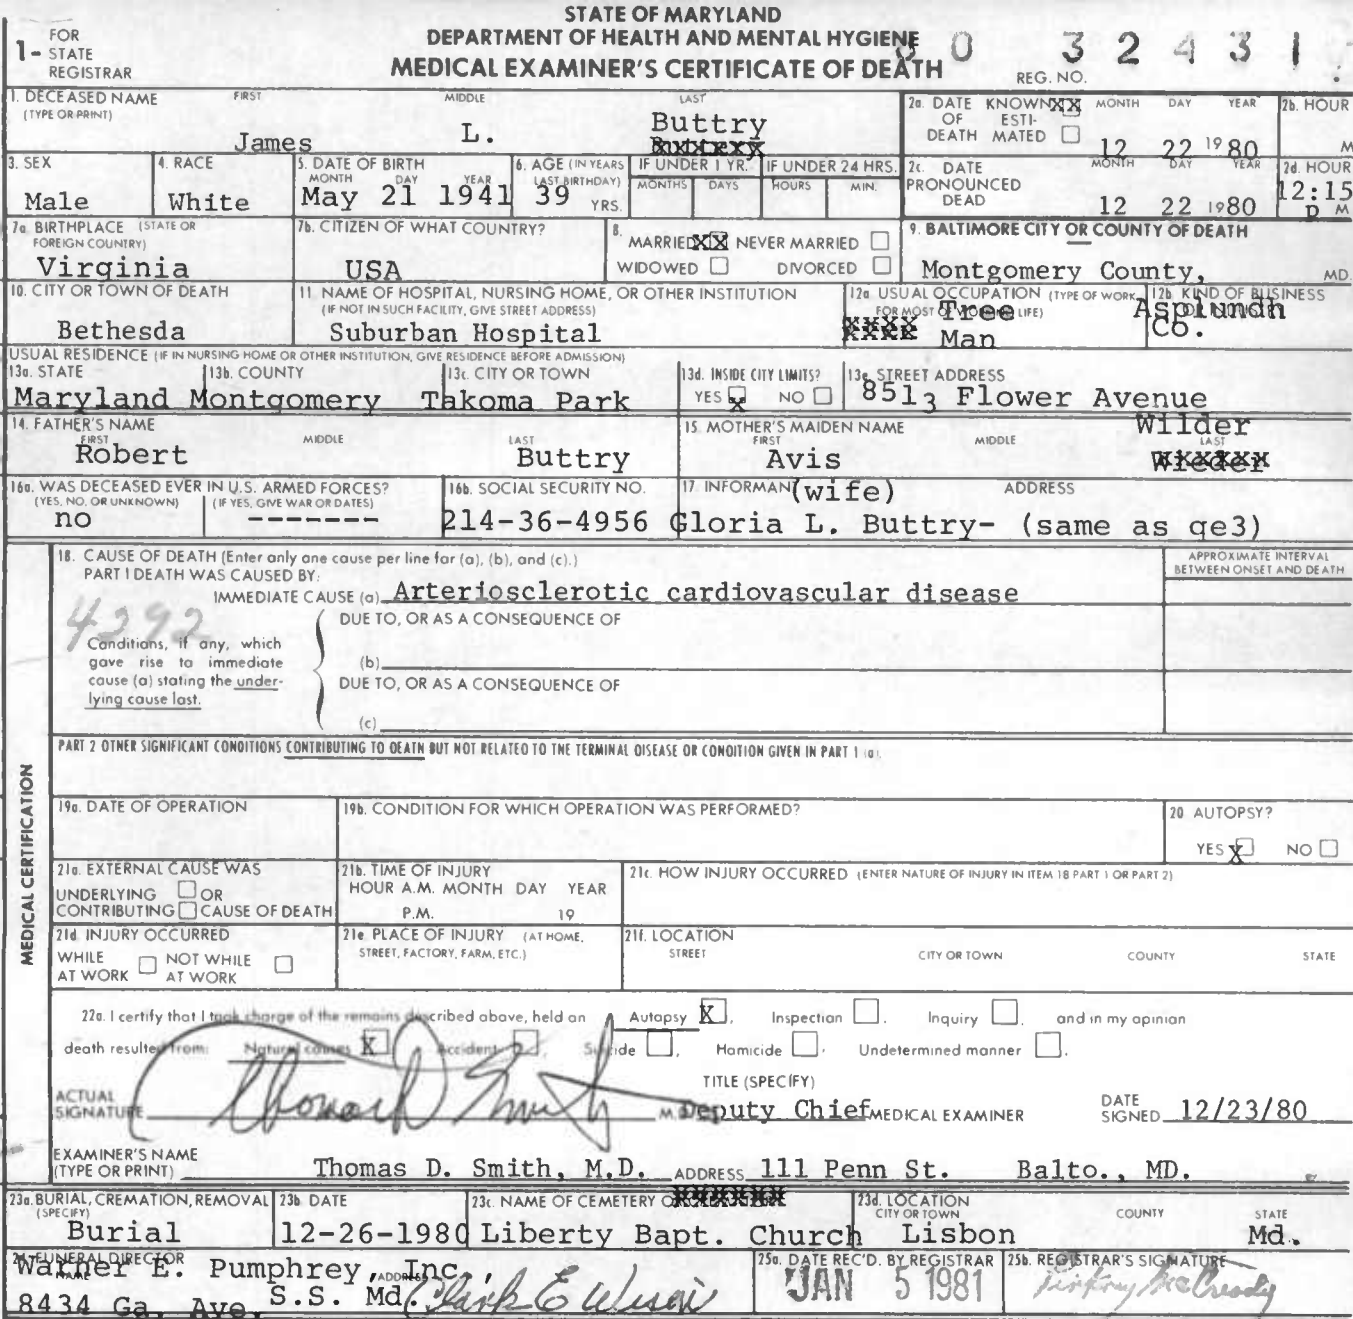 STATE OF MARYLAND
DEPARTMENT OF HEALTH AND MENTAL HYGIENE
MEDICAL EXAMINER'S CERTIFICATE OF DEATH
1- FOR STATE REGISTRAR
REG. NO. 80 32431
1. DECEASED NAME (TYPE OR PRINT) FIRST MIDDLE LAST
James L. Buttry
2a. DATE OF DEATH KNOWN XX ESTIMATED MONTH DAY YEAR
12 22 1980
2b. HOUR M
3. SEX
Male
4. RACE
White
5. DATE OF BIRTH MONTH DAY YEAR
May 21 1941
6. AGE (IN YEARS LAST BIRTHDAY)
39 YRS.
IF UNDER 1 YR. MONTHS DAYS
IF UNDER 24 HRS. HOURS MIN.
2c. DATE PRONOUNCED DEAD MONTH DAY YEAR
12 22 1980
2d. HOUR
12:15 P M
7a. BIRTHPLACE (STATE OR FOREIGN COUNTRY)
Virginia
7b. CITIZEN OF WHAT COUNTRY?
USA
8. MARRIED XX NEVER MARRIED
WIDOWED DIVORCED
9. BALTIMORE CITY OR COUNTY OF DEATH
Montgomery County, MD.
10. CITY OR TOWN OF DEATH
Bethesda
11. NAME OF HOSPITAL, NURSING HOME, OR OTHER INSTITUTION
(IF NOT IN SUCH FACILITY, GIVE STREET ADDRESS)
Suburban Hospital
12a. USUAL OCCUPATION (TYPE OF WORK FOR MOST OF WORKING LIFE)
xxxx Tree
xxxx Man
12b. KIND OF BUSINESS
Asplundh
Co.
USUAL RESIDENCE (IF IN NURSING HOME OR OTHER INSTITUTION, GIVE RESIDENCE BEFORE ADMISSION)
13a. STATE
Maryland
13b. COUNTY
Montgomery
13c. CITY OR TOWN
Takoma Park
13d. INSIDE CITY LIMITS?
YES X NO
13e. STREET ADDRESS
8513 Flower Avenue
14. FATHER'S NAME FIRST MIDDLE LAST
Robert Buttry
15. MOTHER'S MAIDEN NAME FIRST MIDDLE LAST
Avis Wilder
16a. WAS DECEASED EVER IN U.S. ARMED FORCES?
(YES, NO, OR UNKNOWN) (IF YES, GIVE WAR OR DATES)
no -------
16b. SOCIAL SECURITY NO.
214-36-4956
17. INFORMAN (wife) ADDRESS
Gloria L. Buttry- (same as qe3)
MEDICAL CERTIFICATION
18. CAUSE OF DEATH (Enter only one cause per line for (a), (b), and (c).)
PART I DEATH WAS CAUSED BY:
IMMEDIATE CAUSE (a) Arteriosclerotic cardiovascular disease
APPROXIMATE INTERVAL BETWEEN ONSET AND DEATH
4292
Conditions, if any, which gave rise to immediate cause (a) stating the underlying cause last.
DUE TO, OR AS A CONSEQUENCE OF
(b)
DUE TO, OR AS A CONSEQUENCE OF
(c)
PART 2 OTHER SIGNIFICANT CONDITIONS CONTRIBUTING TO DEATH BUT NOT RELATED TO THE TERMINAL DISEASE OR CONDITION GIVEN IN PART 1 (a).
19a. DATE OF OPERATION
19b. CONDITION FOR WHICH OPERATION WAS PERFORMED?
20. AUTOPSY?
YES X NO
21a. EXTERNAL CAUSE WAS
UNDERLYING OR
CONTRIBUTING CAUSE OF DEATH
21b. TIME OF INJURY
HOUR A.M. MONTH DAY YEAR
P.M. 19
21c. HOW INJURY OCCURRED (ENTER NATURE OF INJURY IN ITEM 18 PART 1 OR PART 2)
21d. INJURY OCCURRED
WHILE AT WORK NOT WHILE AT WORK
21e. PLACE OF INJURY (AT HOME, STREET, FACTORY, FARM, ETC.)
21f. LOCATION
STREET CITY OR TOWN COUNTY STATE
22a. I certify that I took charge of the remains described above, held an Autopsy X, Inspection, Inquiry, and in my opinion
death resulted from: Natural causes X, Accident, Suicide, Homicide, Undetermined manner.
ACTUAL SIGNATURE Thomas D Smith M.D.
TITLE (SPECIFY)
Deputy Chief MEDICAL EXAMINER
DATE SIGNED 12/23/80
EXAMINER'S NAME (TYPE OR PRINT) Thomas D. Smith, M.D. ADDRESS 111 Penn St. Balto., MD.
23a. BURIAL, CREMATION, REMOVAL (SPECIFY)
Burial
23b. DATE
12-26-1980
23c. NAME OF CEMETERY OR xxxxxx
Liberty Bapt. Church
23d. LOCATION
CITY OR TOWN COUNTY STATE
Lisbon Md.
24. FUNERAL DIRECTOR
NAME ADDRESS
Warner E. Pumphrey, Inc.,
8434 Ga. Ave. S.S. Md.
Clark E
25a. DATE REC'D. BY REGISTRAR
JAN 5 1981
25b. REGISTRAR'S SIGNATURE